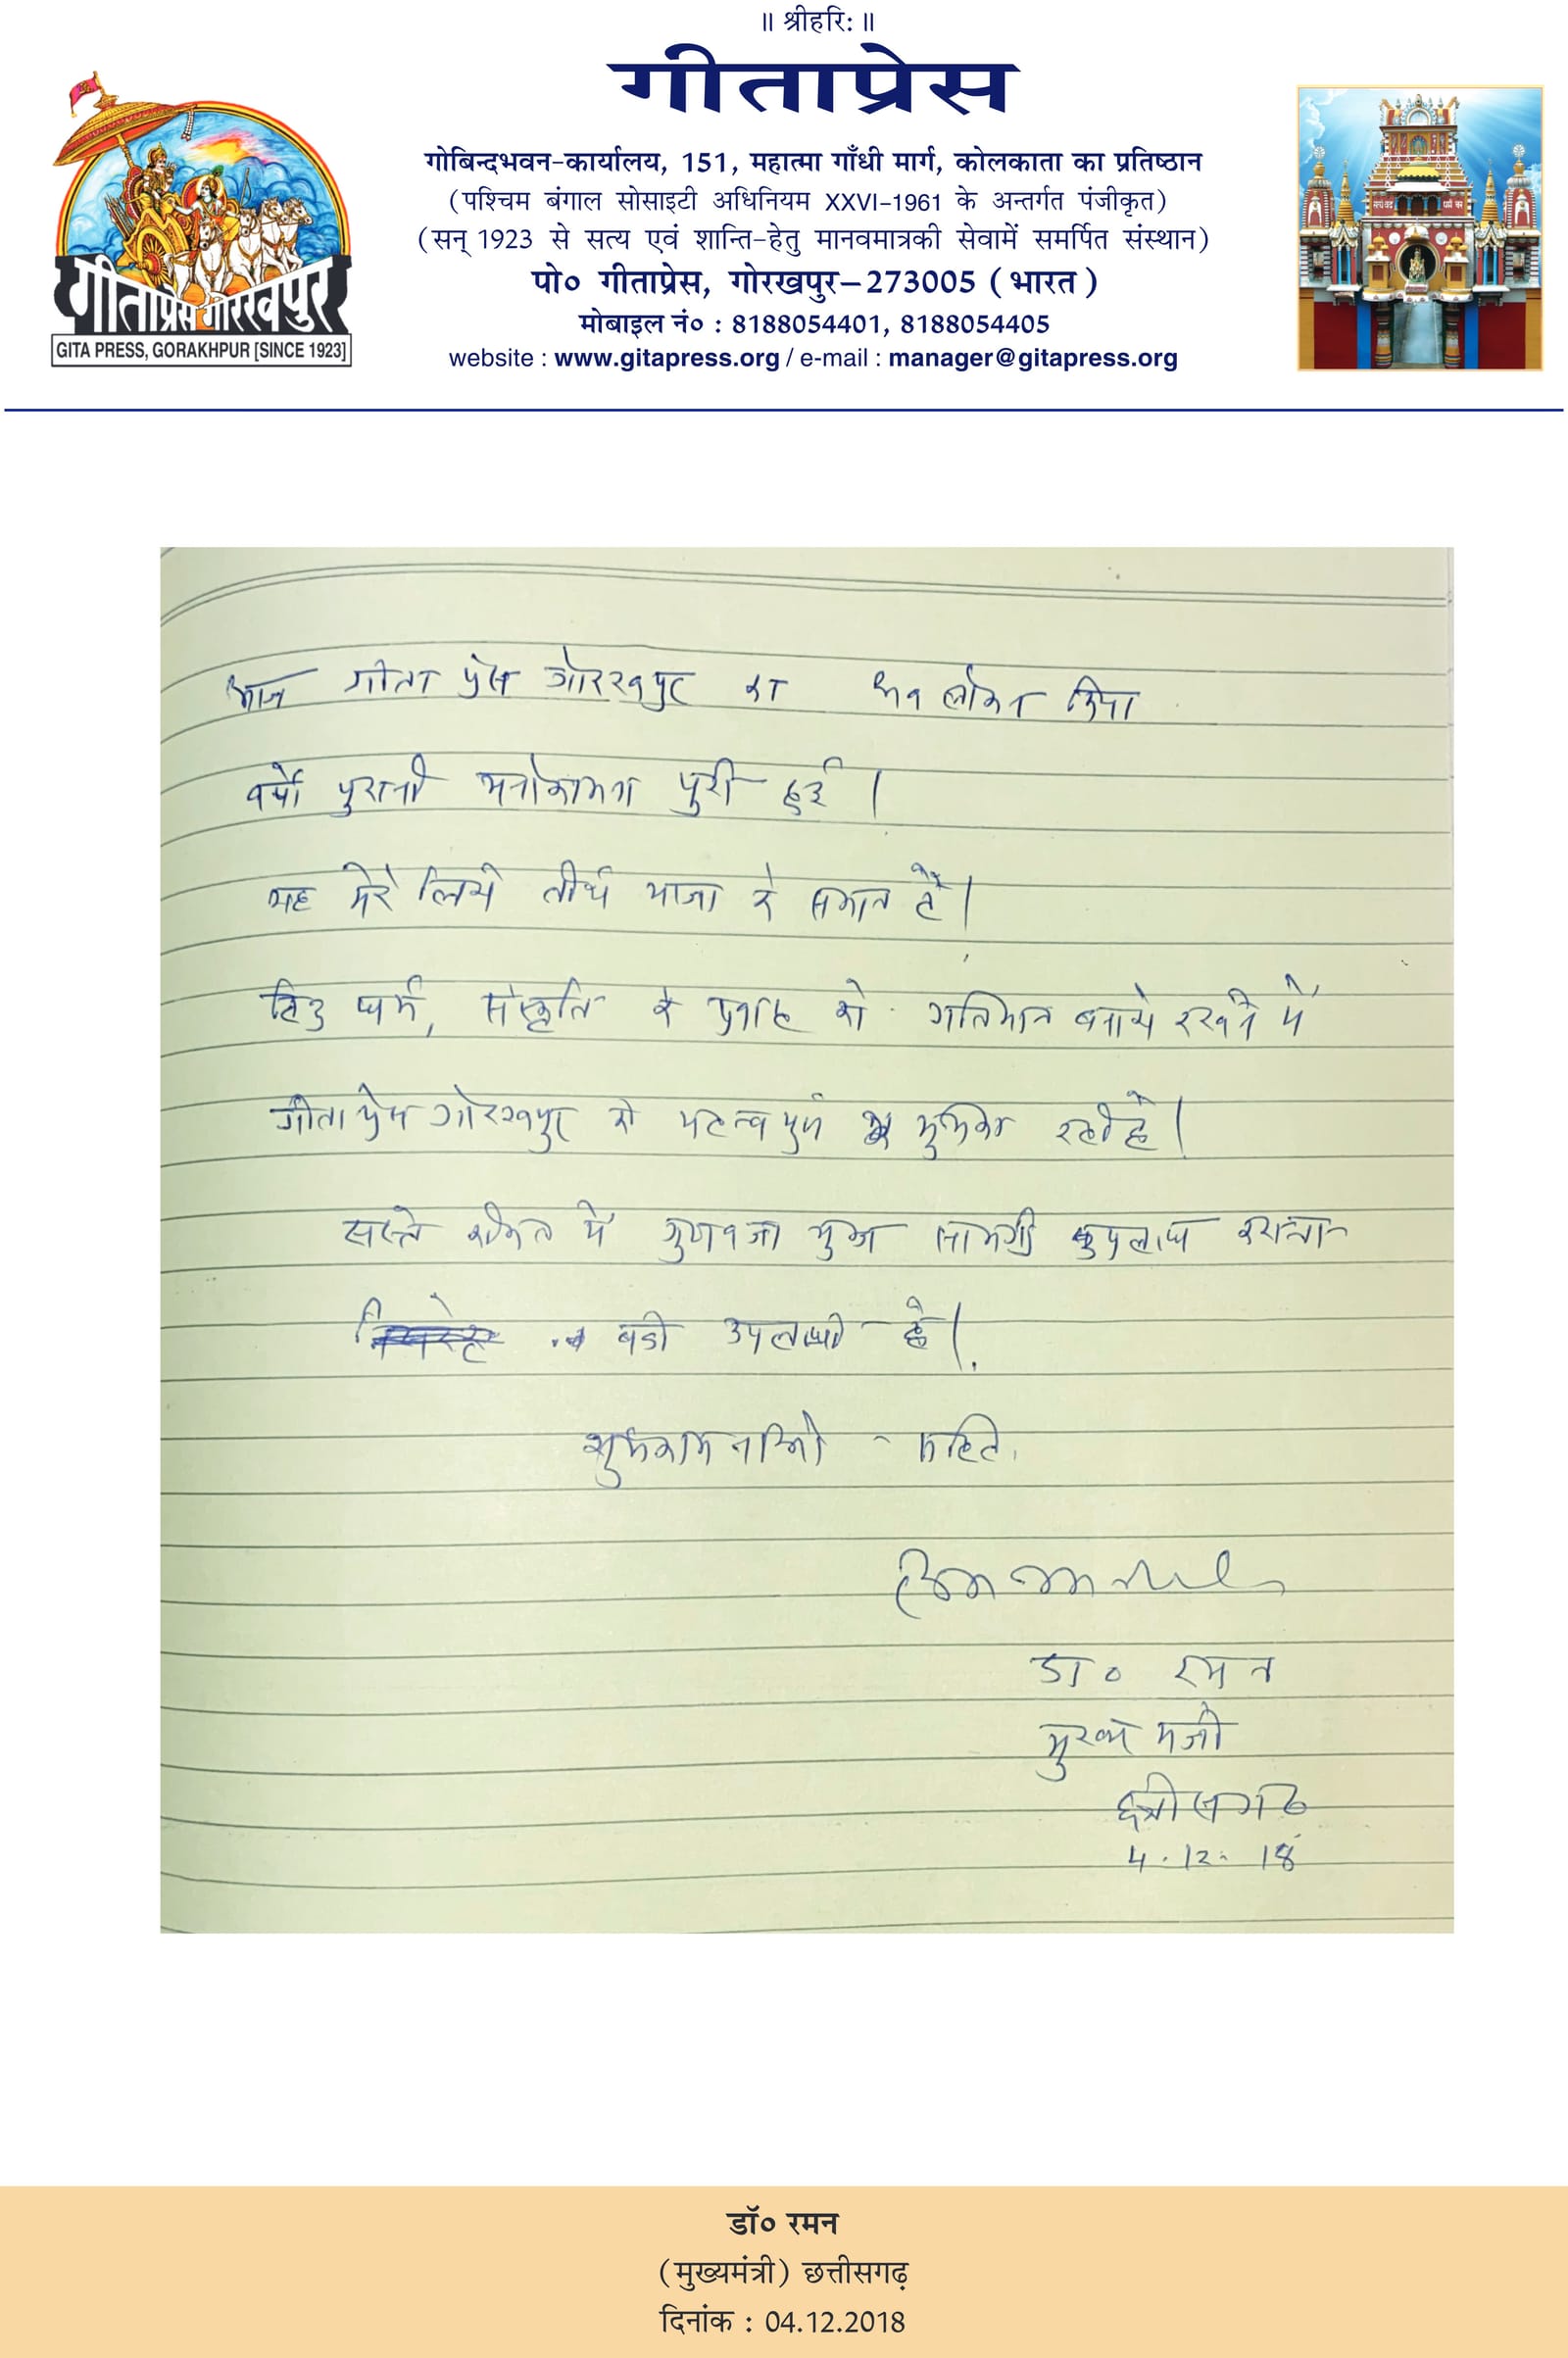 ॥ श्रीहरि: ॥
गीताप्रेस
गोबिन्दभवन-कार्यालय, 151, महात्मा गाँधी मार्ग, कोलकाता का प्रतिष्ठान
(पश्चिम बंगाल सोसाइटी अधिनियम XXVI-1961 के अन्तर्गत पंजीकृत)
(सन् 1923 से सत्य एवं शान्ति-हेतु मानवमात्रकी सेवामें समर्पित संस्थान)
पो० गीताप्रेस, गोरखपुर–273005 (भारत)
मोबाइल नं० : 8188054401, 8188054405
website : www.gitapress.org / e-mail : manager@gitapress.org
गीताप्रेस गोरखपुर
GITA PRESS, GORAKHPUR [SINCE 1923]
आज गीता प्रेस गोरखपुर का अवलोकन किया
वर्षो पुरानी मनोकामना पुरी हुई ।
यह मेरे लिये तीर्थ यात्रा के समान है ।
हिंदु धर्म, संस्कृति के प्रवाह को गतिमान बनाये रखने में
गीता प्रेस गोरखपुर की महत्वपुर्ण भुमिका रही है ।
सस्ते कीमत में गुणवत्ता युक्त सामग्री उपलब्ध कराना
बडी उपलब्धी है ।
शुभकामनाओ - सहित.
डा० रमन
मुख्य मंत्री
छत्तीसगढ
4.12.18
डॉ० रमन
(मुख्यमंत्री) छत्तीसगढ़
दिनांक : 04.12.2018